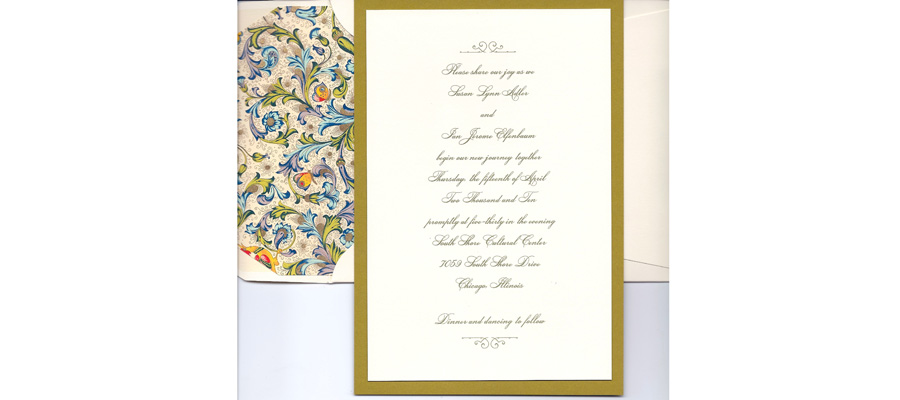 Please share our joy as we
Susan Lynn Adler
and
Ian Jerome Elfenbaum
begin our new journey together
Thursday, the fifteenth of April
Two Thousand and Ten
promptly at five-thirty in the evening
South Shore Cultural Center
7059 South Shore Drive
Chicago, Illinois
Dinner and dancing to follow